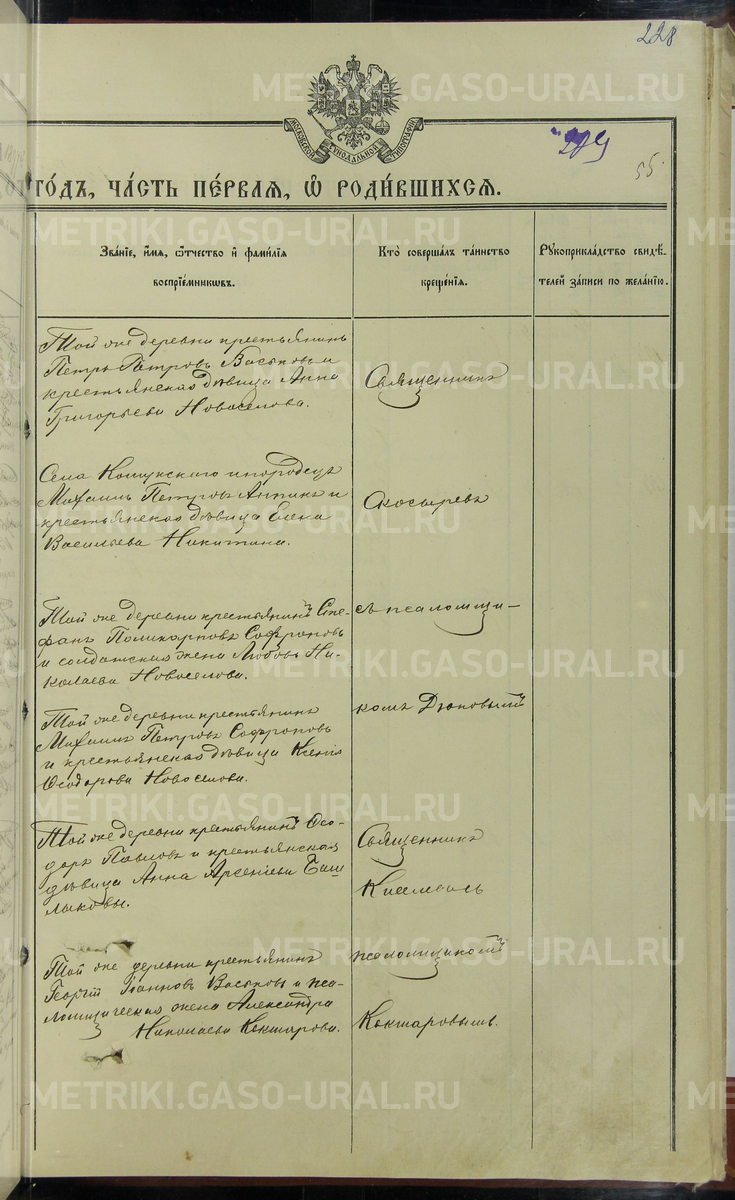 228
МОСКОВСКОЙ СѴНОДАЛЬНОЙ ТИПОГРАФІИ
55.
ГО́ДЪ, ЧА́СТЬ ПЕ́РВАЯ, Ѡ҆ РОДИ́ВШИХСЯ.
Зва́нїе, и҆́мя, ѻ҆́тчество и҆ фами́лїя
воспрїе́мникѡвъ.
Кто̀ соверша́лъ та́инство
креще́нїя.
Рꙋкоприкла́дство свидѣ́-
телей за́писи по жела́нїю.
Той же деревни крестьянинъ
Петръ Петровъ Васьковъ и
крестьянская дѣвица Анна
Григорьева Новоселова.
Священникъ
Села Кошукскаго инородецъ
Михаилъ Петровъ и
крестьянская дѣвица Елена
Васильева Никитина.
Скосыревъ
Той же деревни крестьянинъ Сте-
фанъ Поликарповъ Софроновъ
и солдатская жена Любовь Ни-
колаева Новоселова.
съ псаломщи-
Той же деревни крестьянинъ
Михаилъ Петровъ Софроновъ
и крестьянская дѣвица Ксенія
Ѳеодорова Новоселова.
комъ
Той же деревни крестьянинъ Ѳео-
доръ Павловъ и крестьянская
дѣвица Анна Арсеніева Баш
лыковы.
Священникъ
Киселевъ съ
Той же деревни крестьянинъ
Георгій Іоанновъ Васьковъ и пса-
ломщическая жена Александра
Николаева Кокшарова.
псаломщикомъ
Кокшаровымъ.
METRIKI.GASO-URAL.RU